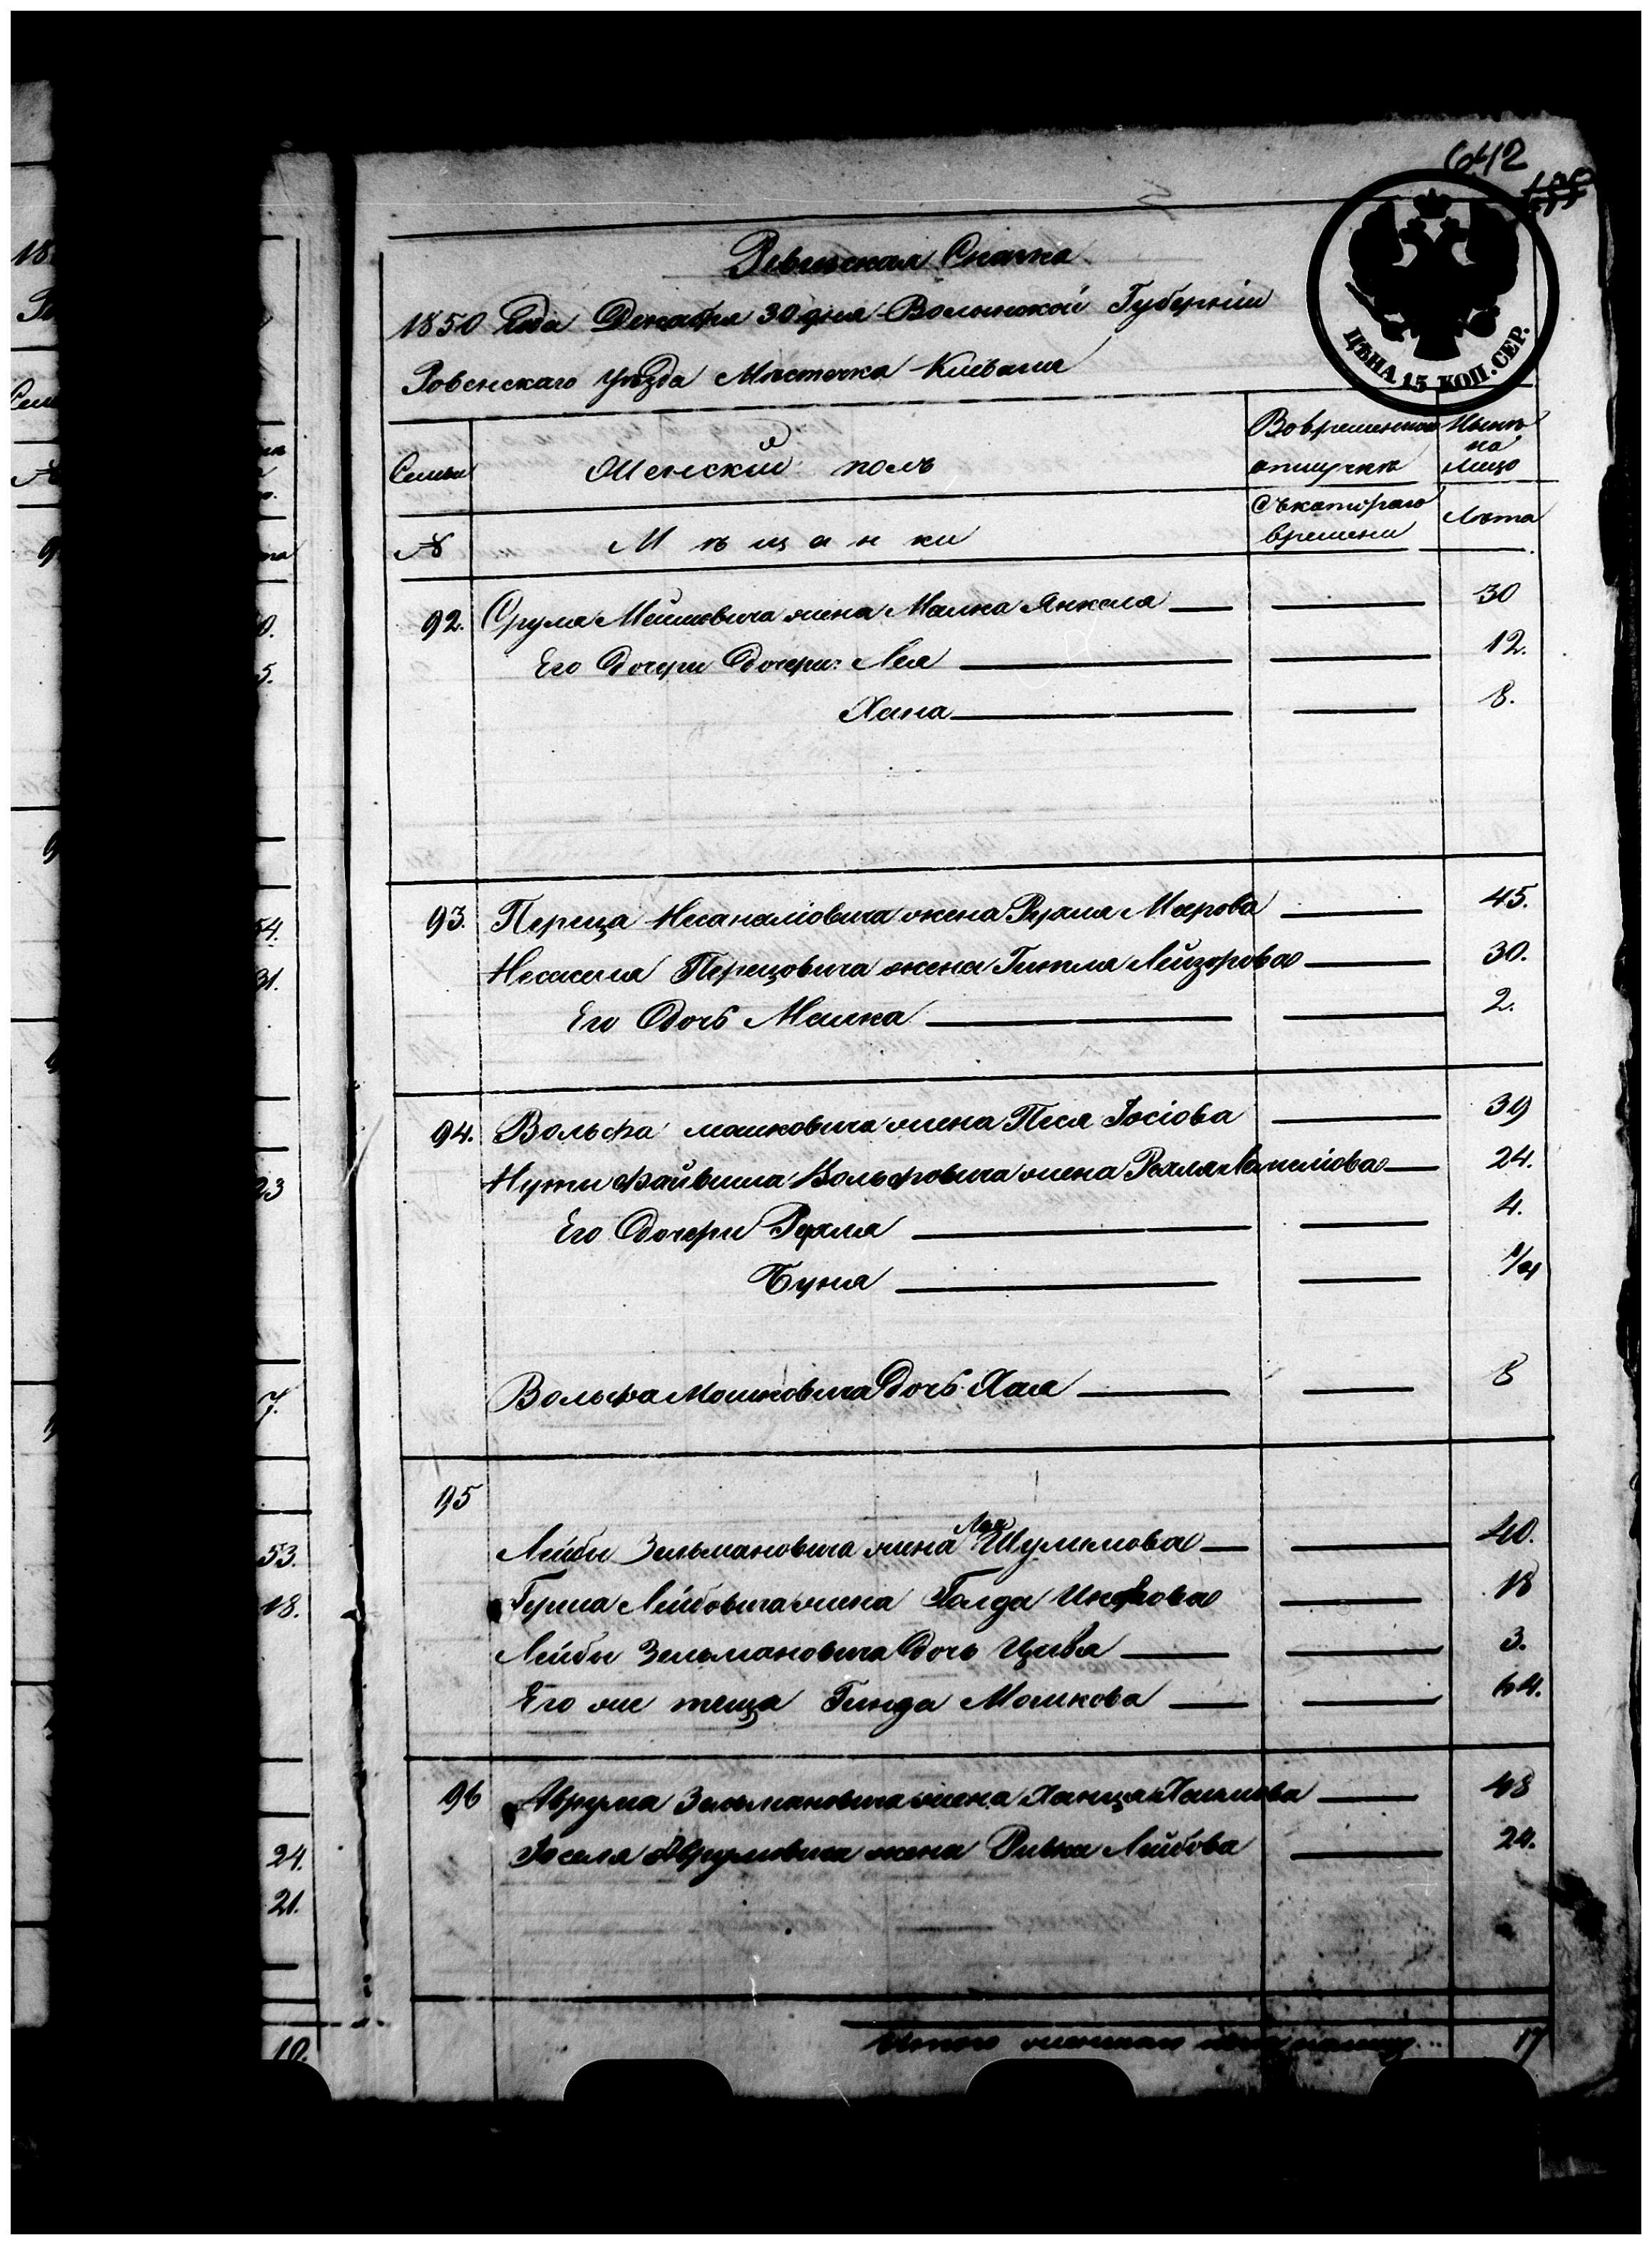 642
Ревизская Сказка
1850 Года Декабря 30 дня Волынской Губерніи
Ровенскаго уѣзда Мѣстечка Клеваня
ЦѢНА 15 КОП. СЕР.
Семьи Женскій полъ Во временной отлучкѣ Нынѣ на лицо
№ Мѣщанки Съ котораго времени Лѣта
92. Срула Мошковича жена Малка Янкеля 30
Его дочери Лея 12.
Хана 8.
93. Переца жена Рухля Меерова 45.
Перецовича жена Гитля Лейзорова 30.
Его Дочь Малка 2.
94. Вольфа мошковича жена Песя Іосіова 39
Нути Файвиша Вольфовича жена Рехля 24.
Его Дочери Рухля 4.
Буня 1/4
Вольфа Мошковича Дочь Хая 8
95
Лейбы Зельмановича жена Лея Шулимова 40.
Герша Лейбовича жена Голда 18
Лейбы Зельмановича Дочь Цивя 3.
Его же теща Гинда Мошкова 64.
96 Аврума Зельмановича жена Ханця Хаимова 48
Іоселя Аврумовича жена Ривка Лейбова 20.
Итого женскаго пола на лицо 17
54.
31.
23
7.
53.
18.
24.
21.
10.